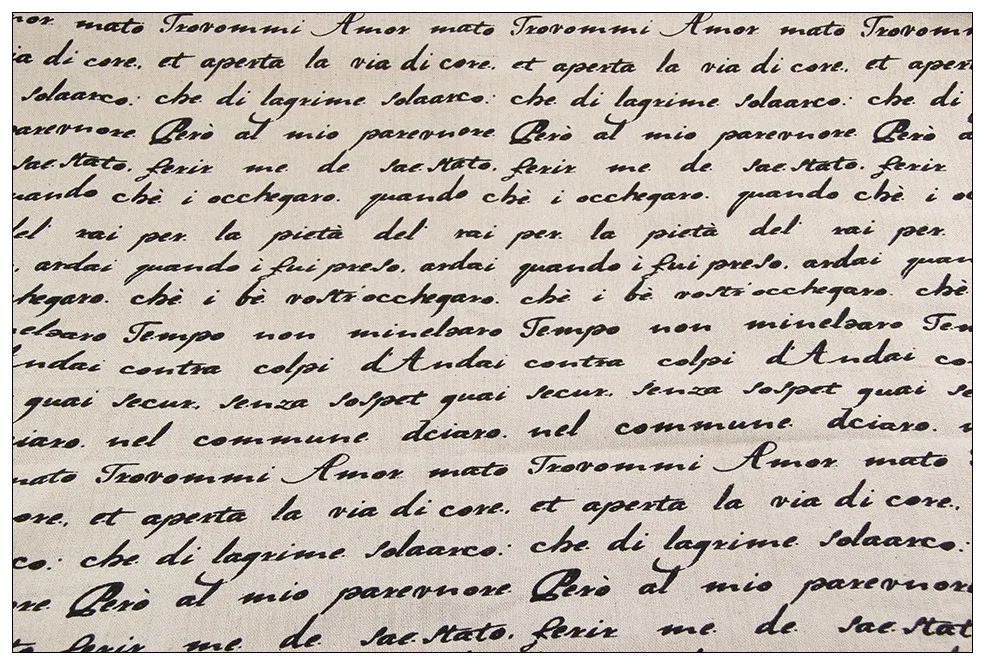 mor mato Trovommi Amor mato Trovommi Amor mato Trovomm
ia di core, et aperta la via di core, et aperta la via di core, et aper
solaarco: che di lagrime solaarco: che di lagrime solaarco: che di
parevnore Però al mio parevnore Però al mio parevnore Però a
sae stato, ferir me de sae stato, ferir me de sae stato, ferir
uando chè i occhegaro. quando chè i occhegaro. quando chè i oc
del rai per la pietà del rai per la pietà del rai per
, ardai quando i fui preso, ardai quando i fui preso, ardai quan
hegaro. chè i bè vostr'occhegaro. chè i bè vostr'occhegaro. chè
nelsaro Tempo non minelsaro Tempo non minelsaro Tem
Andai contra colpi d'Andai contra colpi d'Andai co
quai secur, senza sospet quai secur, senza sospet quai se
iaro. nel commune dciaro. nel commune dciaro. n
mato Trovommi Amor mato Trovommi Amor mato
ore, et aperta la via di core, et aperta la via di core,
co: che di lagrime solaarco: che di lagrime solaarco:
re Però al mio parevnore Però al mio parevnore
to ferir me de sae stato, ferir me de sae stat